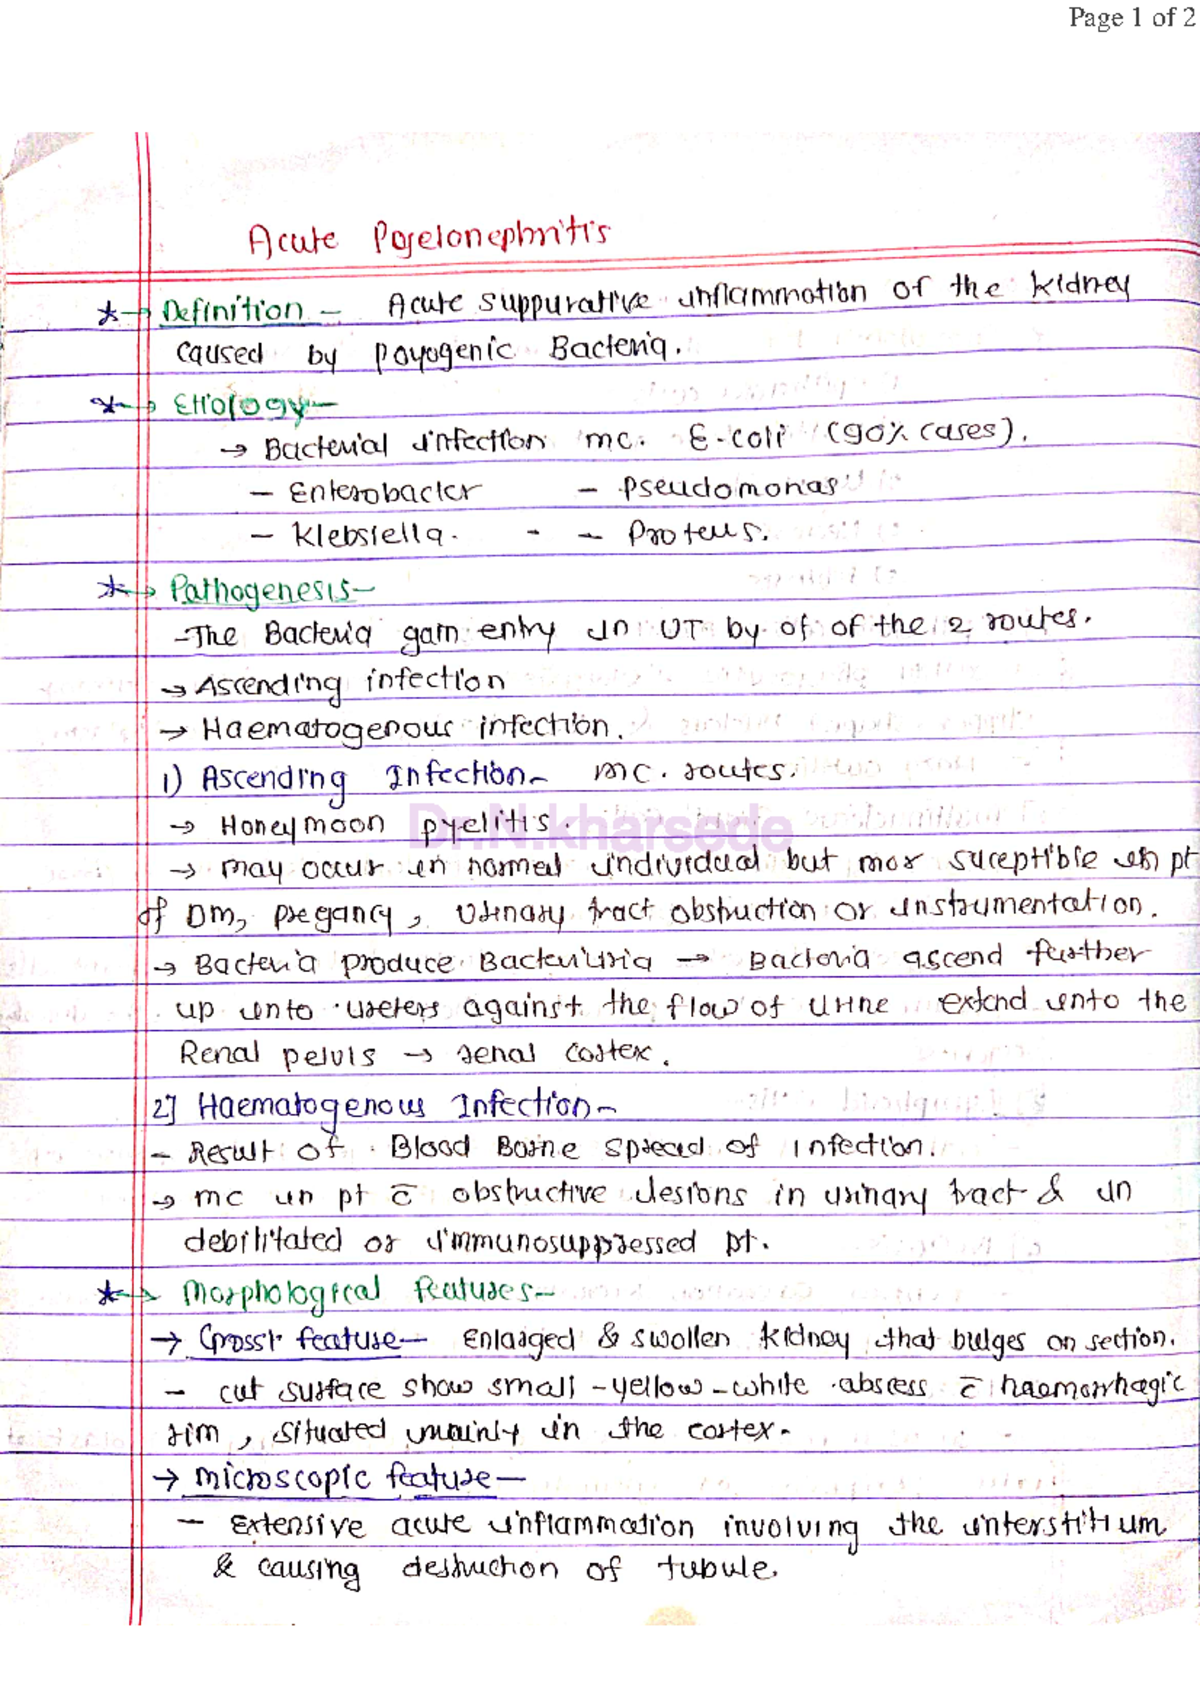 Page 1 of 2
Acute Poyelonephritis
* → Definition - Acute suppurative inflammation of the kidney
caused by poyogenic Bacteria.
* → Etiology -
→ Bacterial infection mc. E-coli (90% cases).
- Enterobacter - Pseudomonas
- Klebsiella. - - Proteus.
* → Pathogenesis -
- The Bacteria gain entry in UT by of of the 2 routes.
→ Ascending infection
→ Haematogenous infection.
1) Ascending Infection - mc. routes.
→ Honeymoon pyelitis.
Dr.N.kharsede
→ may occur in normal individual but mor suceptible in pt
of DM, pregancy, Urinary tract obstruction or instrumentation.
→ Bacteria produce Bacteriuria → Bacteria ascend further
up into ureters against the flow of urine extend into the
Renal pelvis → renal cortex.
2] Haematogenous Infection -
- Result of Blood Borne spread of infection.
→ mc in pt c̄ obstructive lesions in urinary tract & in
debilitated or immunosuppressed pt.
* → Morphological features -
→ Gross1. feature - Enlarged & swollen kidney that bulges on section.
- cut surface show small - yellow - white abscess c̄ haemorrhagic
rim, situated mainly in the cortex.
→ microscopic feature -
- Extensive acute inflammation involving the interstitium
& causing destruction of tubule.